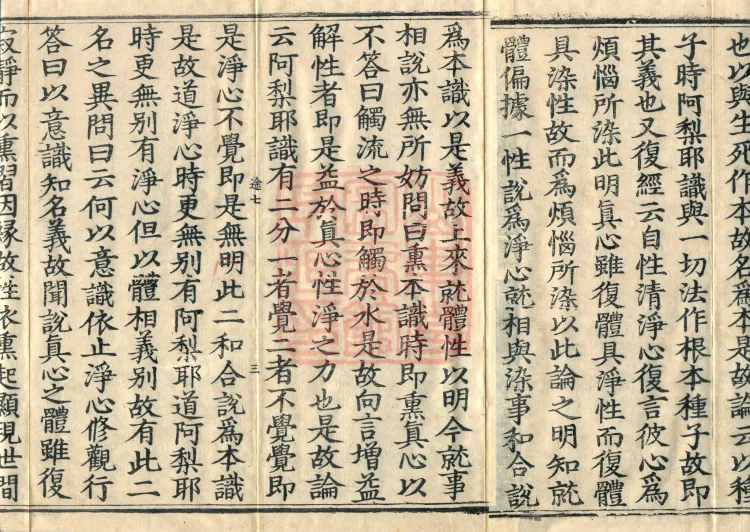 也以與生死作本故名爲本是故論云以種
子時阿梨耶識與一切法作根本種子故即
其義也又復經云自性清淨心復言彼心爲
煩惱所染此明眞心雖復體具淨性而復體
具染性故而爲煩惱所染以此論之明知就
體偏據一性說爲淨心就相與染事和合說
爲本識以是義故上來就體性以明今就事
相說亦無所妨問曰熏本識時即熏眞心以
不答曰觸流之時即觸於水是故向言增益
解性者即是益於眞心性淨之力也是故論
云阿梨耶識有二分一者覺二者不覺覺即
途七
三
是淨心不覺即是無明此二和合說爲本識
是故道淨心時更無別有阿梨耶道阿梨耶
時更無別有淨心但以體相義別故有此二
名之異問曰云何以意識依止淨心修觀行
答曰以意識知名義故聞說眞心之體雖復
寂靜而以熏習因緣故性依熏起顯現世間